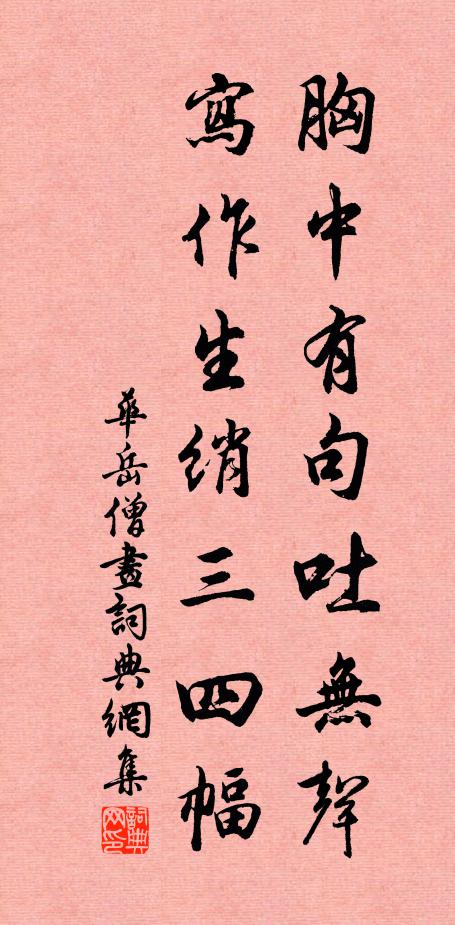 胸中有句吐無聲
寫作生綃三四幅
華岳僧畫詞典網集
詞典网印